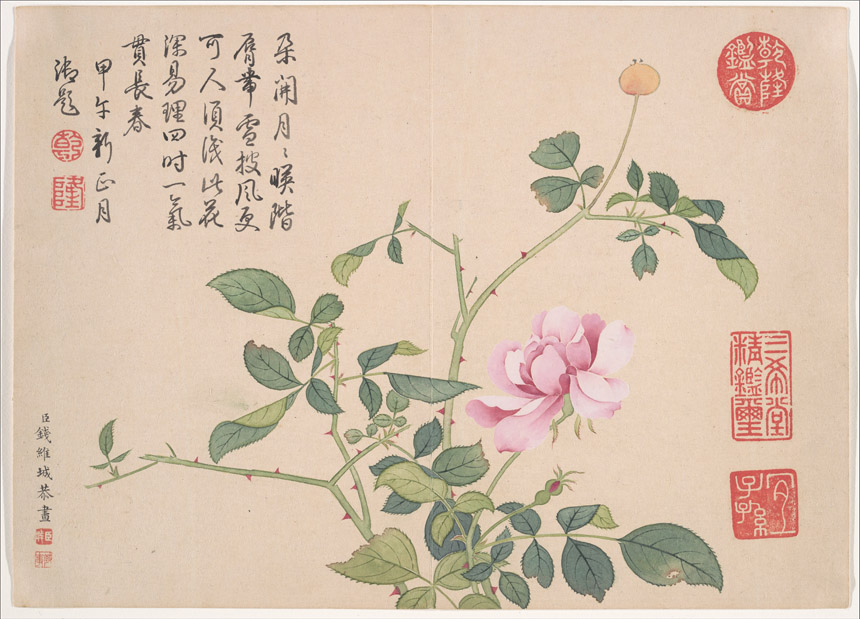 乾隆鑑賞
三希堂精鑑璽
宜子孫
朵開月〻暎階
脣帶雪披風更
可人須識此花
深易理四时一氣
貫長春
甲午新正月
御題
乾
隆
臣錢維城恭畫